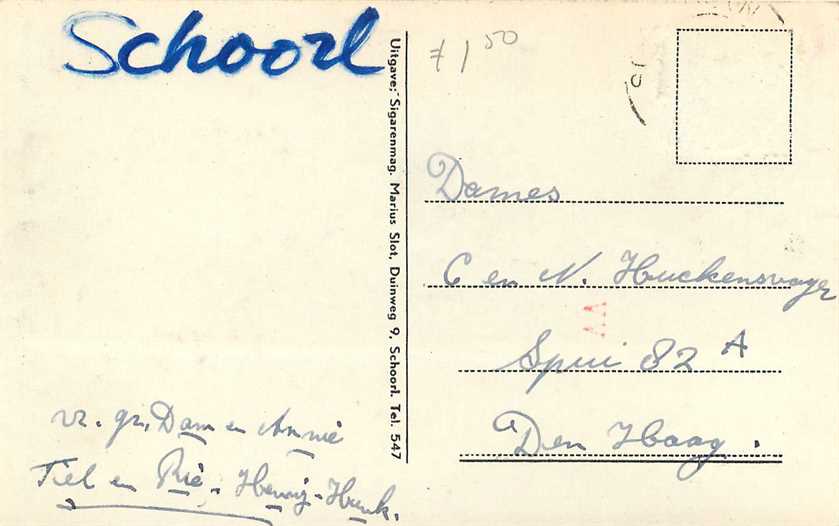 Schoorl
Uitgave: Sigarenmag. Marius Slot, Duinweg 9, Schoorl. Tel. 547
ƒ 1 50
Dames
C en N. Huckensvoyer
Spui 82 A
Den Haag.
vr. gr. Dam en Annie
Tiel en Rie. Henny - Henk.